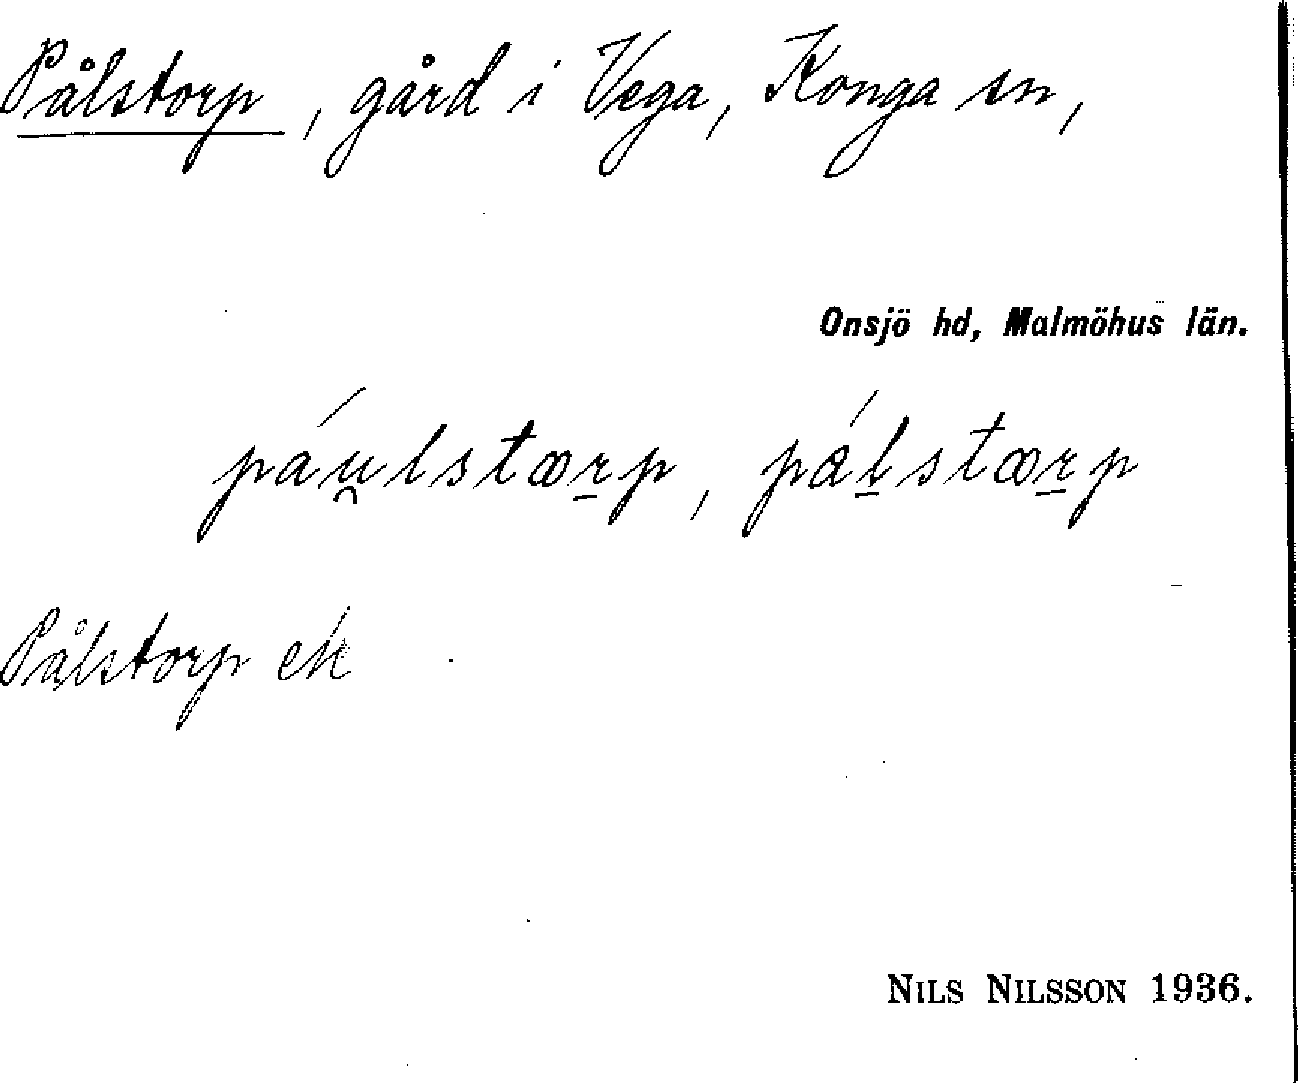 Pålstorp, gård i Vega, Konga sn,
Onsjö hd, Malmöhus län.
páu̯lstœ̠rp, pál̠stœr̠p
Pålstorp ek
NILS NILSSON 1936.